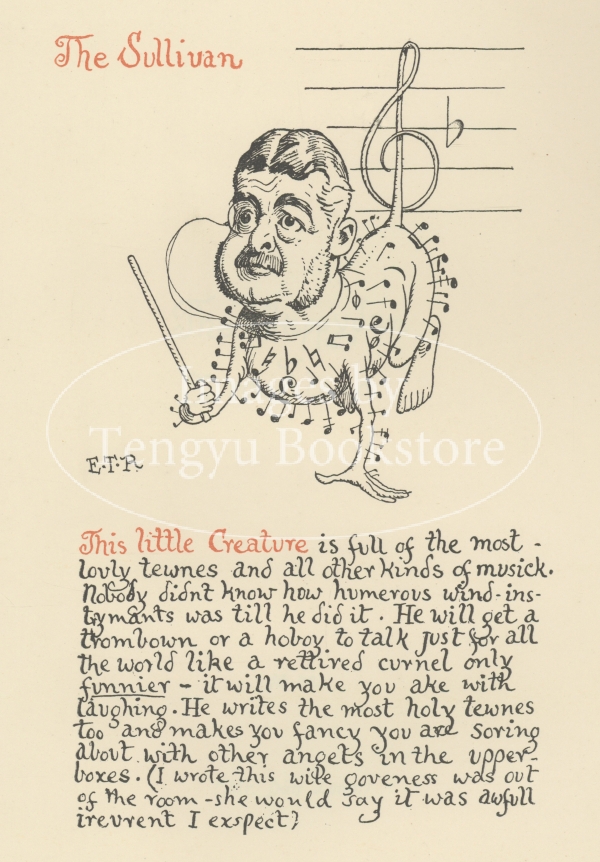 The Sullivan
Images by
Tengyu Bookstore
E.T.R.
This little Creature is full of the most -
lovly tewnes and all other kinds of musick.
Nobody didnt know how humerous wind-ins-
tymants was till he did it. He will get a
trombown or a hoboy to talk just for all
the world like a rettired curnel only
funnier - it will make you ake with
laughing. He writes the most holy tewnes
too and makes you fancy you are soring
about with other angets in the upper-
boxes. (I wrote this wile goveness was out
of the room - she would say it was awfull
irevrent I exspect)